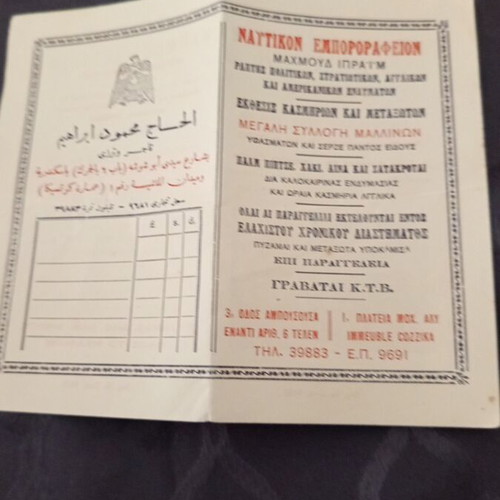 الحاج محمود ابراهيم
تاجر وترزى
بشارع سيدى أبو شوشه (باب ٣ الجمرك) باسكندرية
وميدان المنشية رقم ١ (عمارة كوتسيكا)
سجل تجارى ٩٦٨١ - تليفون نمرة ٣٩٨٨٣
£ s. d.
ΝΑΥΤΙΚΟΝ ΕΜΠΟΡΟΡΑΦΕΙΟΝ
ΜΑΧΜΟΥΔ ΙΠΡΑΪΜ
ΡΑΠΤΗΣ ΠΟΛΙΤΙΚΩΝ, ΣΤΡΑΤΙΩΤΙΚΩΝ, ΑΓΓΛΙΚΩΝ
ΚΑΙ ΑΜΕΡΙΚΑΝΙΚΩΝ ΕΝΔΥΜΑΤΩΝ
ΕΚΘΕΣΙΣ ΚΑΣΜΗΡΙΩΝ ΚΑΙ ΜΕΤΑΞΩΤΩΝ
ΜΕΓΑΛΗ ΣΥΛΛΟΓΗ ΜΑΛΛΙΝΩΝ
ΥΦΑΣΜΑΤΩΝ ΚΑΙ ΣΕΡΖΕ ΠΑΝΤΟΣ ΕΙΔΟΥΣ
ΠΑΛΜ ΠΙΤΣΣ, ΧΑΚΙ, ΛΙΝΑ ΚΑΙ ΣΑΤΑΚΡΟΥΤΑΙ
ΔΙΑ ΚΑΛΟΚΑΙΡΙΝΑΣ ΕΝΔΥΜΑΣΙΑΣ
ΚΑΙ ΩΡΑΙΑ ΚΑΣΜΗΡΙΑ ΑΓΓΛΙΚΑ
ΟΛΑΙ ΑΙ ΠΑΡΑΓΓΕΛΙΑΙ ΕΚΤΕΛΟΥΝΤΑΙ ΕΝΤΟΣ
ΕΛΑΧΙΣΤΟΥ ΧΡΟΝΙΚΟΥ ΔΙΑΣΤΗΜΑΤΟΣ
ΠΥΖΑΜΑΙ ΚΑΙ ΜΕΤΑΞΩΤΑ ΥΠΟΚΑΜΙΣΑ
ΕΠΙ ΠΑΡΑΓΓΕΛΙΑ
ΓΡΑΒΑΤΑΙ Κ.Τ.Β.
3, ΟΔΟΣ ΑΜΠΟΥΣΟΥΣΑ
ΕΝΑΝΤΙ ΑΡΙΘ. 6 ΤΕΛΩΝ
1, ΠΛΑΤΕΙΑ ΜΟΧ. ΑΛΥ
IMMEUBLE COZZIKA
ΤΗΛ. 39883 - Ε.Π. 9691